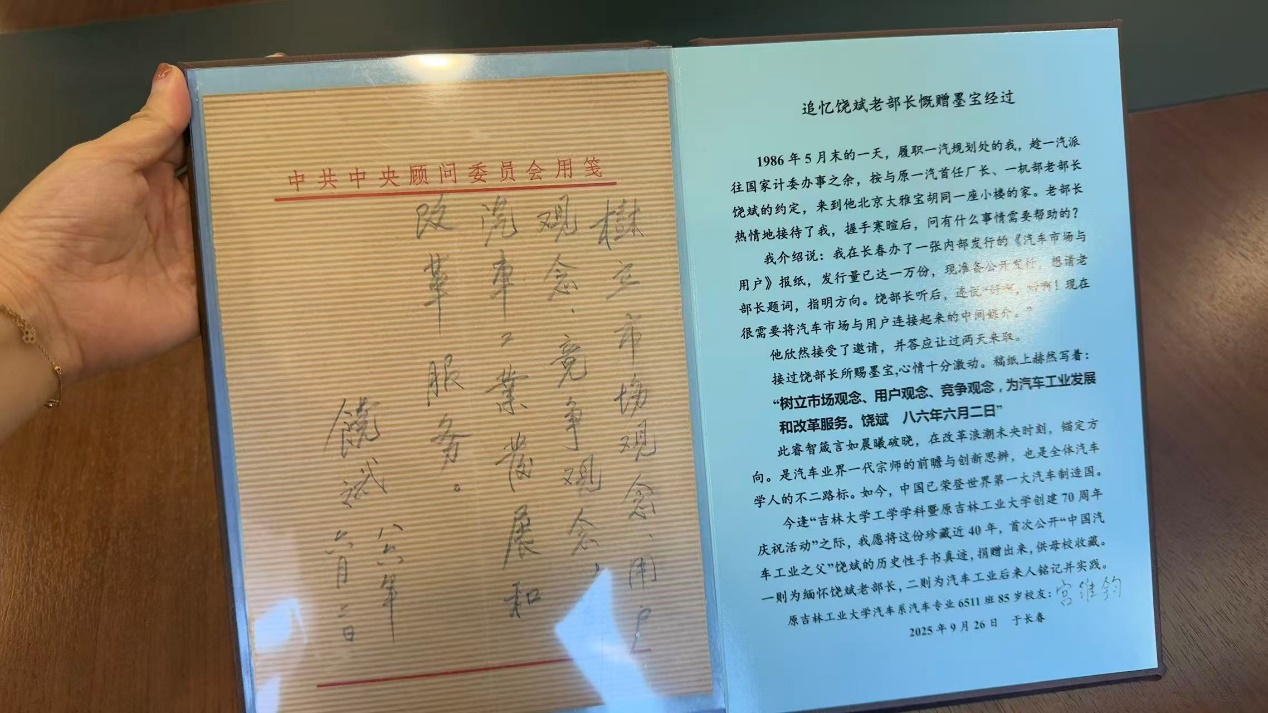 中共中央顾问委员会用笺
樹立市场观念、用户
观念、竞争观念,
汽车工业发展和
改革服务。
饒斌
八六年
六月二日
追忆饶斌老部长慨赠墨宝经过
1986年5月末的一天，履职一汽规划处的我，趁一汽派
往国家计委办事之余，按与原一汽首任厂长、一机部老部长
饶斌的约定，来到他北京大雅宝胡同一座小楼的家。老部长
热情地接待了我，握手寒暄后，问有什么事情需要帮助的？
我介绍说：我在长春办了一张内部发行的《汽车市场与
用户》报纸，发行量已达一万份，现准备公开发行，想请老
部长题词，指明方向。饶部长听后，连说“好啊，好啊！现在
很需要将汽车市场与用户连接起来的中间媒介。”
他欣然接受了邀请，并答应让过两天来取。
接过饶部长所赐墨宝,心情十分激动。稿纸上赫然写着：
“树立市场观念、用户观念、竞争观念，为汽车工业发展
和改革服务。饶斌 八六年六月二日”
此睿智箴言如晨曦破晓，在改革浪潮未央时刻，锚定方
向。是汽车业界一代宗师的前瞻与创新思辨，也是全体汽车
学人的不二路标。如今，中国已荣登世界第一大汽车制造国。
今逢“吉林大学工学学科暨原吉林工业大学创建70周年
庆祝活动”之际，我愿将这份珍藏近40年，首次公开“中国汽
车工业之父”饶斌的历史性手书真迹，捐赠出来，供母校收藏。
一则为缅怀饶斌老部长，二则为汽车工业后来人铭记并实践。
原吉林工业大学汽车系汽车专业6511班85岁校友：宫维钧
2025年9月26日 于长春